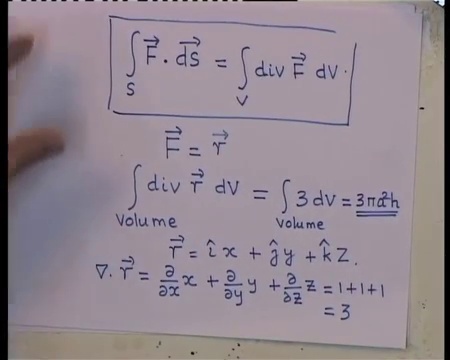 ∫_S F⃗ · dS⃗ = ∫_V div F⃗ dV.
F⃗ = r⃗
∫_volume div r⃗ dV = ∫_volume 3 dV = 3πa²h
r⃗ = îx + ĵy + k̂z.
∇. r⃗ = ∂/∂x x + ∂/∂y y + ∂/∂z z = 1+1+1
= 3